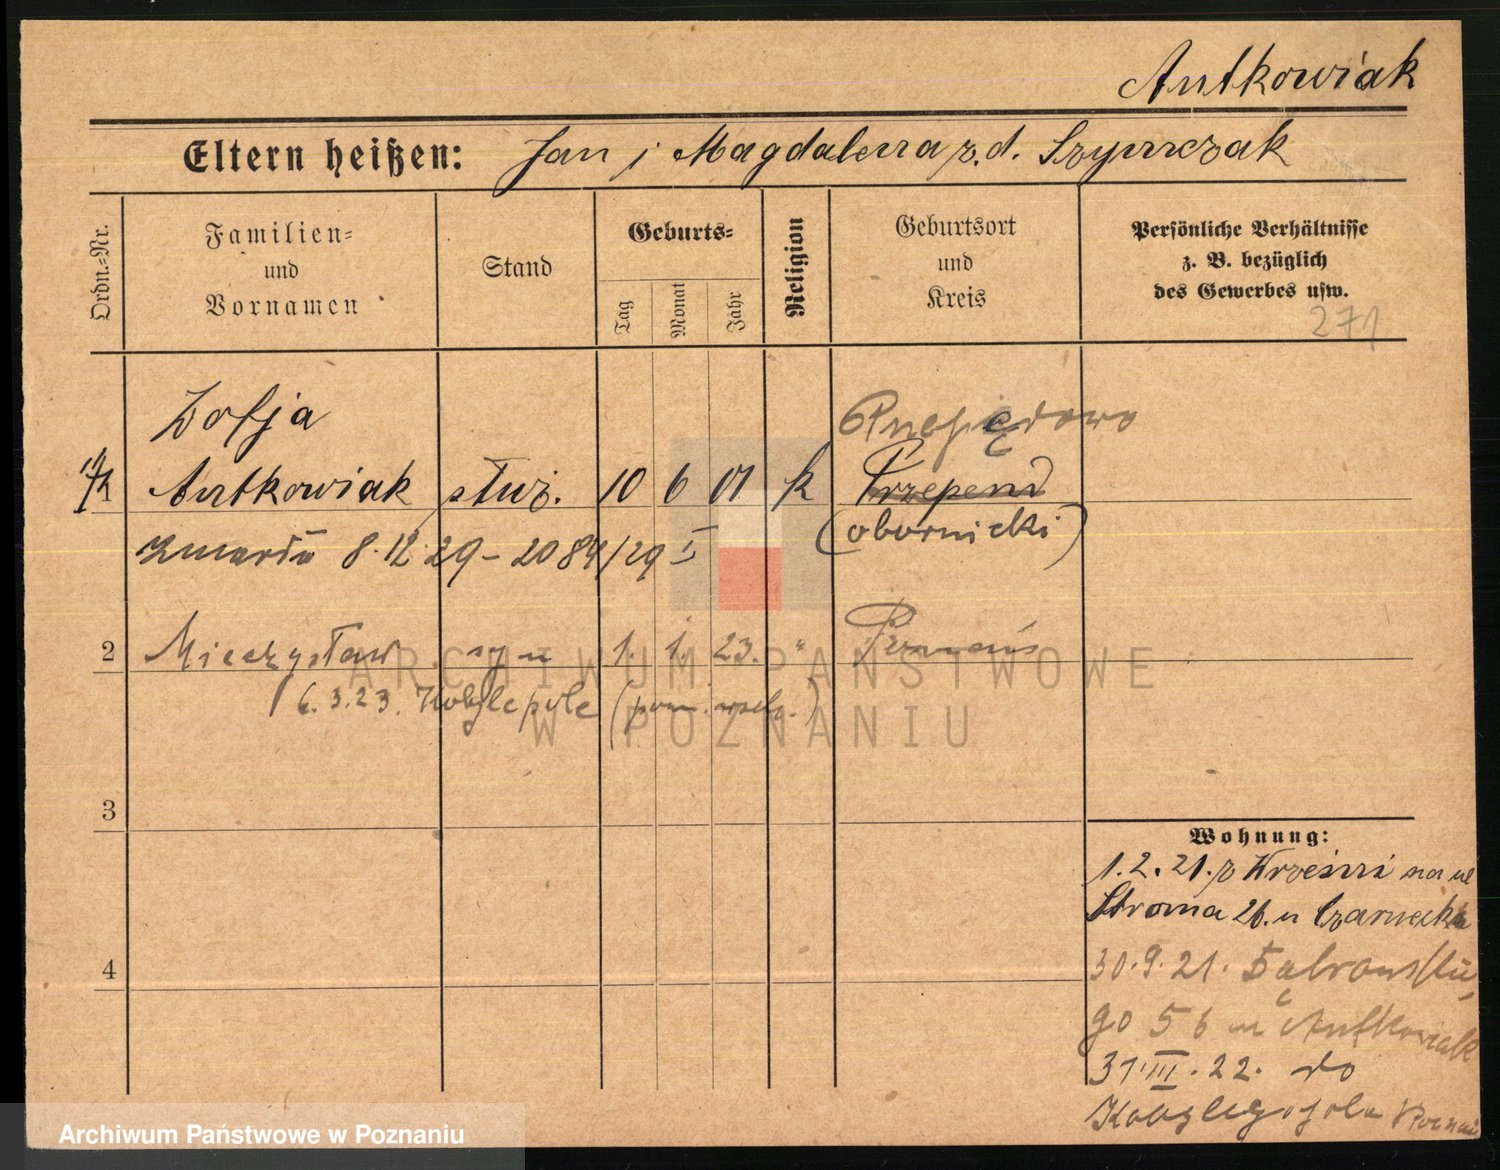 Antkowiak
Eltern heißen: Jan i Magdalena z.d. Szymczak
Ordn.=Nr.
Familien=
und
Vornamen
Stand
Geburts=
Tag
Monat
Jahr
Religion
Geburtsort
und
Kreis
Persönliche Verhältnisse
z. B. bezüglich
des Gewerbes usw.
271
Zofja
Antkowiak służ. 10 6 01 k Przepend
(obornicki)
zmarła 8.12.29 - 2084/29 I
2 Mieczysław syn 1. 1. 23. " Poznań
6.3.23. Kobylepole (pow. wsch.)
ARCHIWUM PAŃSTWOWE
W POZNANIU
3
4
Wohnung:
1.2.21. z Krzesin na ul
Stroma 26. u Czarnecka
30.9.21.
go 56 u Antkowiak
31.III.22. do
Kobylegopola Poznań
Archiwum Państwowe w Poznaniu